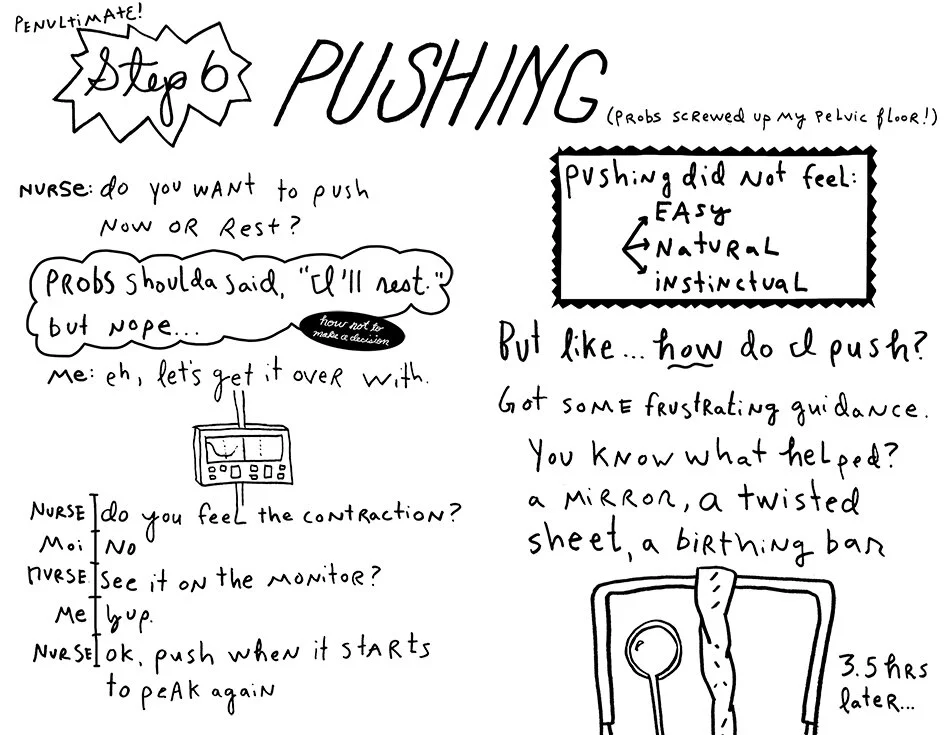 PENULTIMATE!
Step 6
PUSHING
(PROBS SCREWED UP MY PELVIC FLOOR!)
NURSE: do you WANT to push
NOW OR REST?
PROBS shoulda said, "I'll rest."
but NOPE...
how not to
make a decision
ME: eh, let's get it over with.
NURSE do you feel the contraction?
Moi No
NURSE See it on the monitor?
Me Yup.
NURSE ok, push when it STARTS
to peak again
pushing did not feel:
EASY
NATURAL
INSTINCTUAL
But like... how do I push?
Got some frustrating guidance.
You know what helped?
a mirror, a twisted
sheet, a birthing bar
3.5 hrs
later...